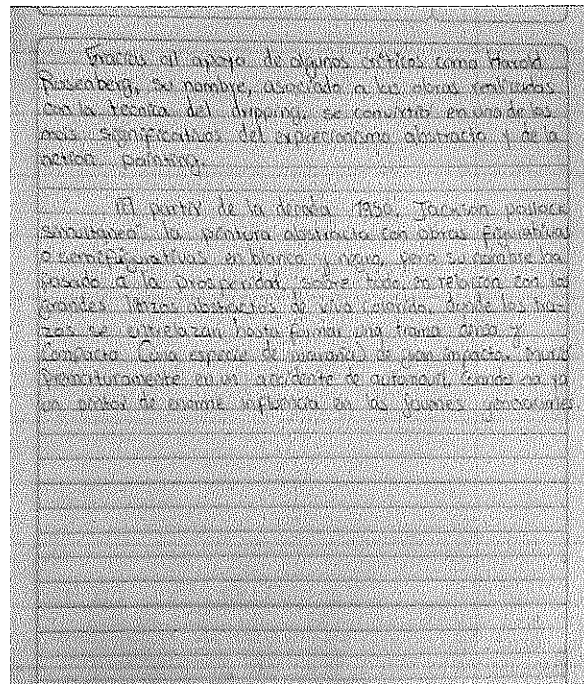 Gracias al apoyo de algunos críticos como Harold
Rosenberg, su nombre, asociado a las obras realizadas
con la técnica del dripping, se convirtió en uno de los
mas significativos del exprecionismo abstracto y de la
action painting.
A partir de la decada 1950, Jackson pollock
simultaneo la pintura abstracta con obras figurativas
o semifigurativas en blanco y negro, pero su nombre ha
pasado a la prosperidad, sobre todo, en relación con los
grandes lienzos abstractos de vivo colorido, donde los tra
zos se entrelazan hasta formar una trama densa y
Compacta. Cuna especie de maraña de gran impacto. Murió
Prematuramente en un accidente de automovil, Cuando era ya
un pintor de enorme influencia en las jovenes generaciones